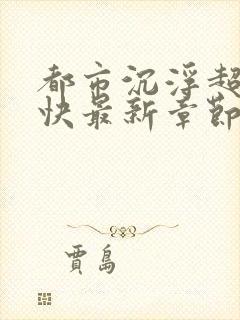 都市沉浮超
快最新章節
賈島